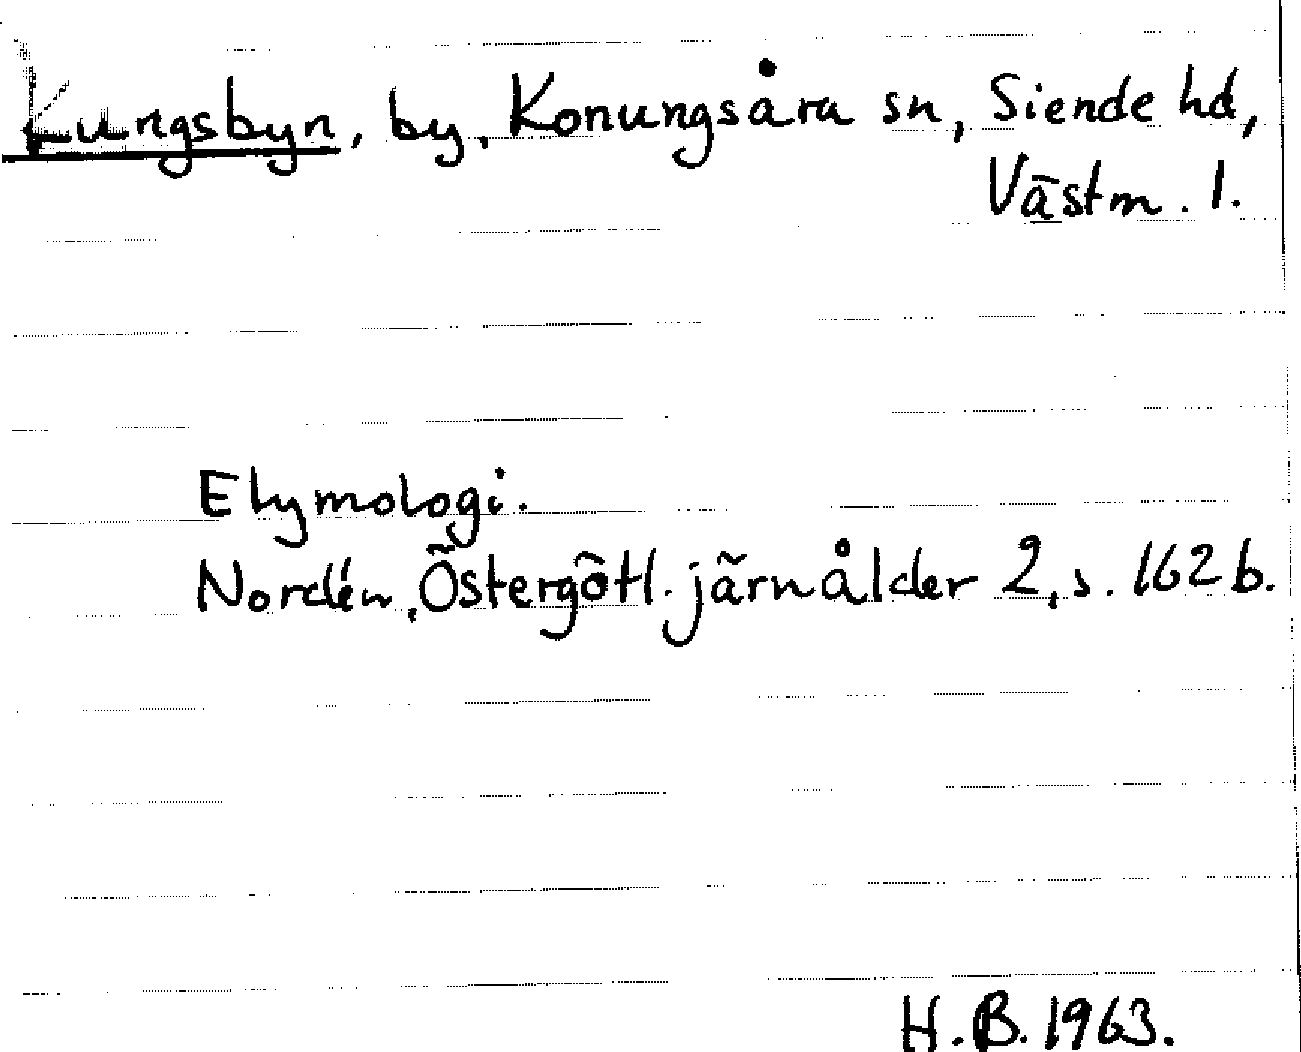 Kungsbyn, by, Konungsåra sn, Siende hd,
Västm. l.
Etymologi.
Nordén, Östergötl. järnålder 2, s. 162 b.
H.B. 1963.